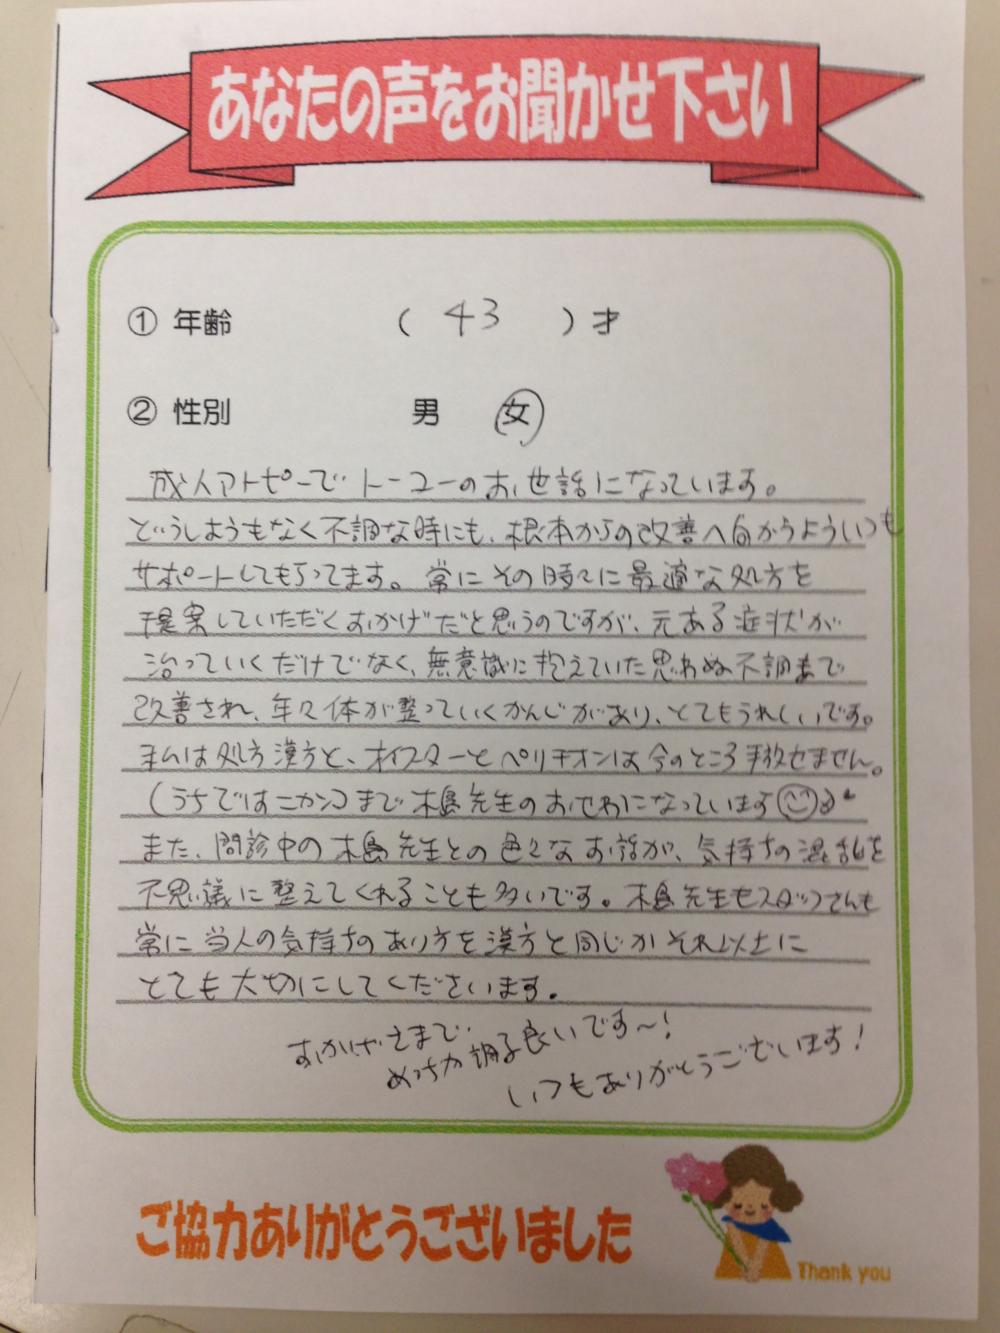 あなたの声をお聞かせ下さい
① 年齢 ( 43 ) 才
② 性別 男 女
成人アトピーでトーユーのお世話になっています。
どうしようもなく不調な時にも、根本からの改善へ向かうよういつも
サポートしてもらってます。常にその時々に最適な処方を
提案していただくおかげだと思うのですが、元ある症状が
治っていくだけでなく、無意識に抱えていた思わぬ不調まで
改善され、年々体が整っていくかんじがあり、とてもうれしいです。
私は処方漢方と、オイスターとペリチオンは今のところ手放せません。
(うちではニャンコまで木島先生のおせわになっています
また、問診中の木島先生との色々なお話が、気持ちの混乱を
不思議に整えてくれることも多いです。木島先生もスタッフさんも
常に当人の気持ちのあり方を漢方と同じかそれ以上に
とても大切にしてくださいます。
おかげさまで、
めっちゃ調子良いです〜!
いつもありがとうございます!
ご協力ありがとうございました
Thank you